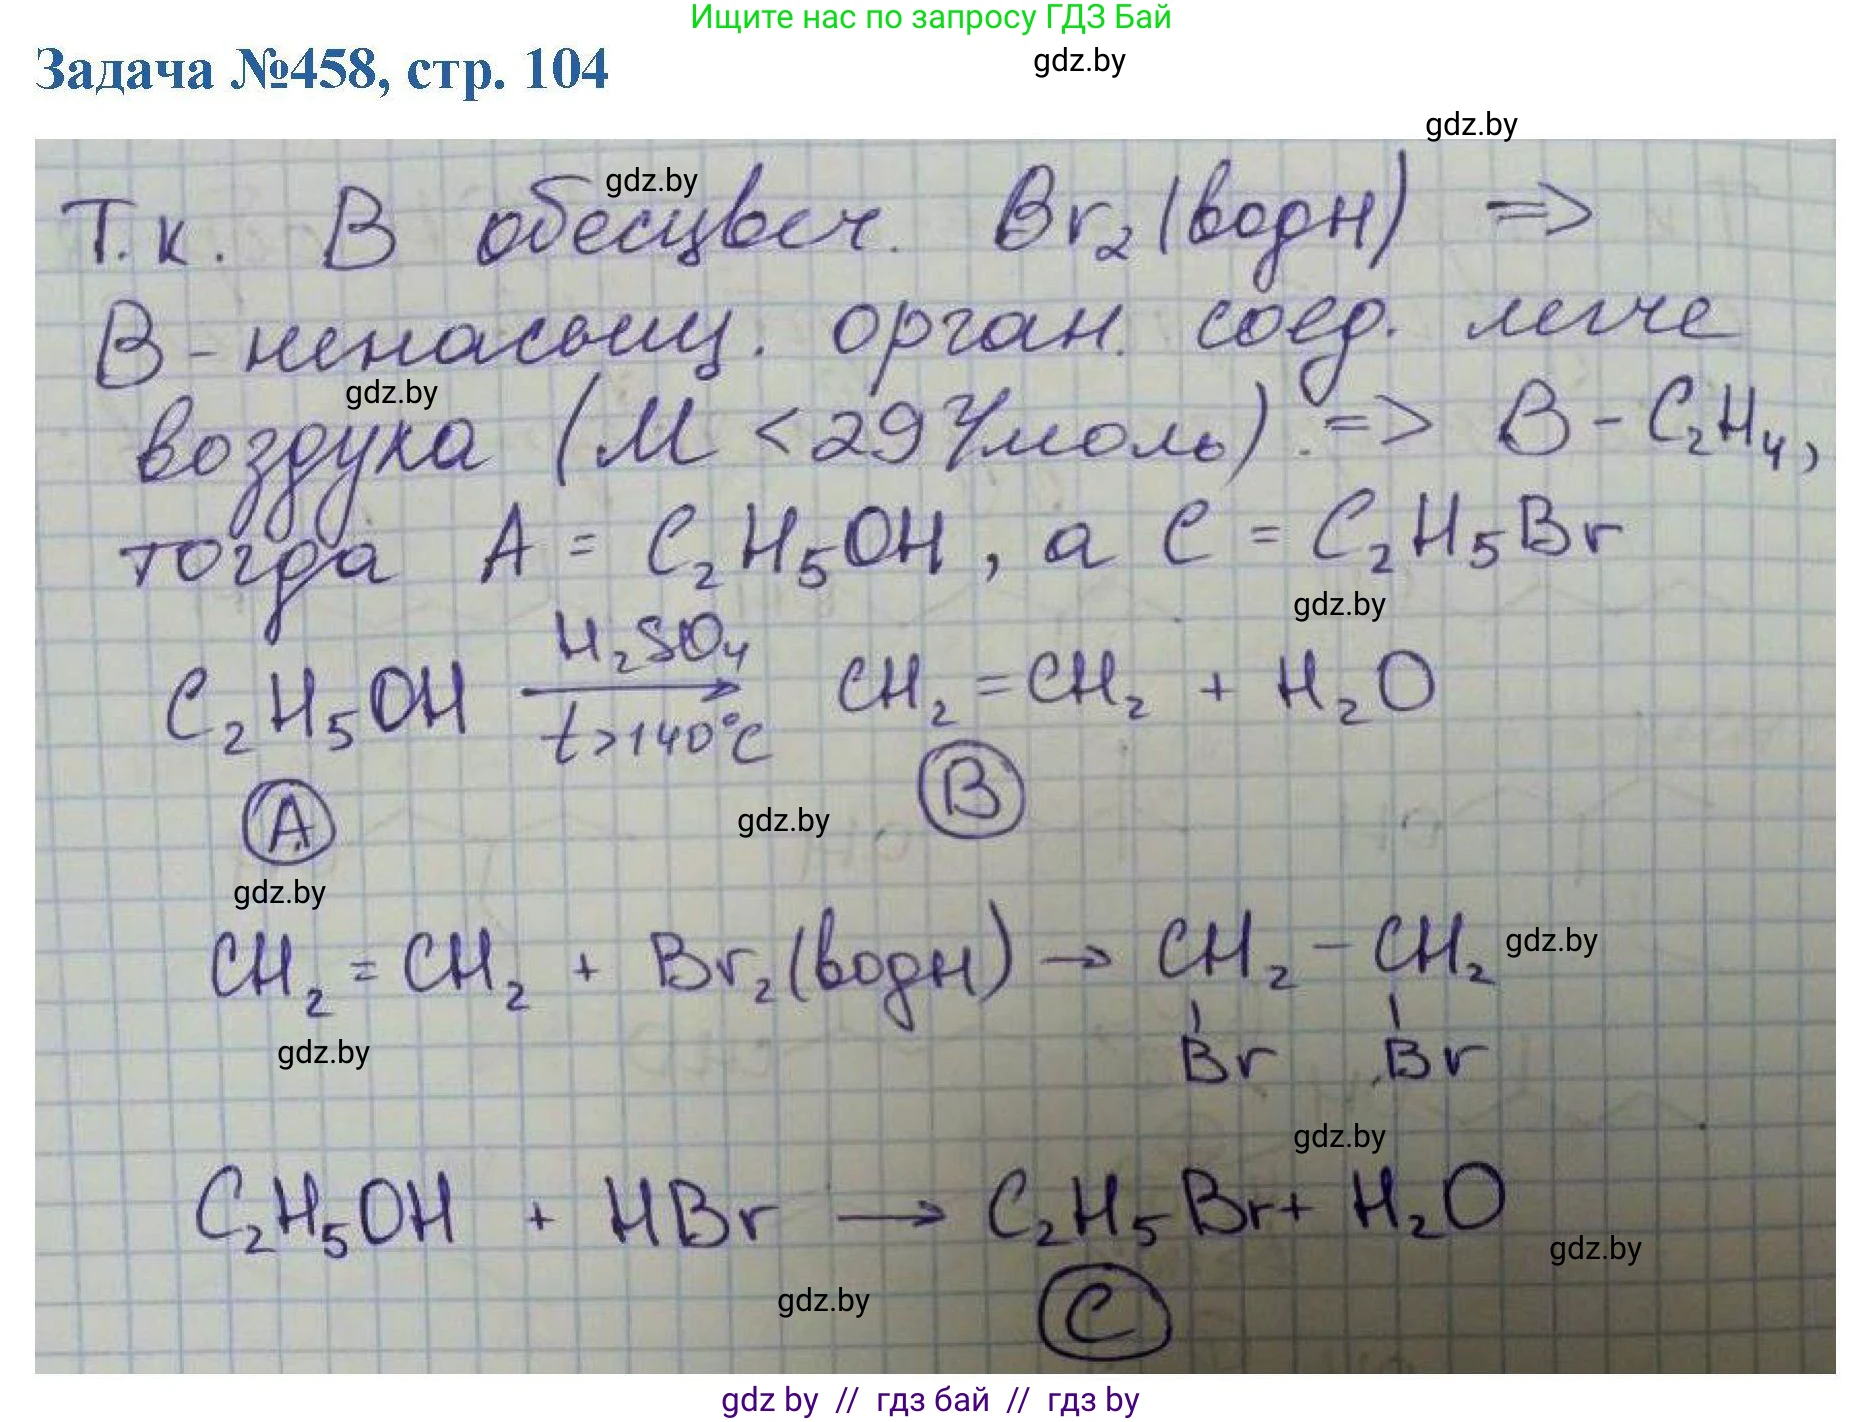 Ищите нас по запросу ГДЗ Бай
Задача №458, стр. 104
gdz.by
gdz.by
gdz.by
Т.к. В обесцвеч. Br₂(водн) =>
В - ненасыщ. орган. соед. легче
gdz.by
воздуха (М < 29 г/моль) => В - C₂H₄,
тогда А = C₂H₅OH, а С = C₂H₅Br
gdz.by
C₂H₅OH H₂SO₄ → t>140°C CH₂=CH₂ + H₂O
А В
gdz.by
gdz.by
CH₂=CH₂ + Br₂(водн) → CH₂-CH₂
gdz.by
Br Br
gdz.by
gdz.by
C₂H₅OH + HBr → C₂H₅Br + H₂O
gdz.by
С
gdz.by
gdz by // гдз бай // гдз by